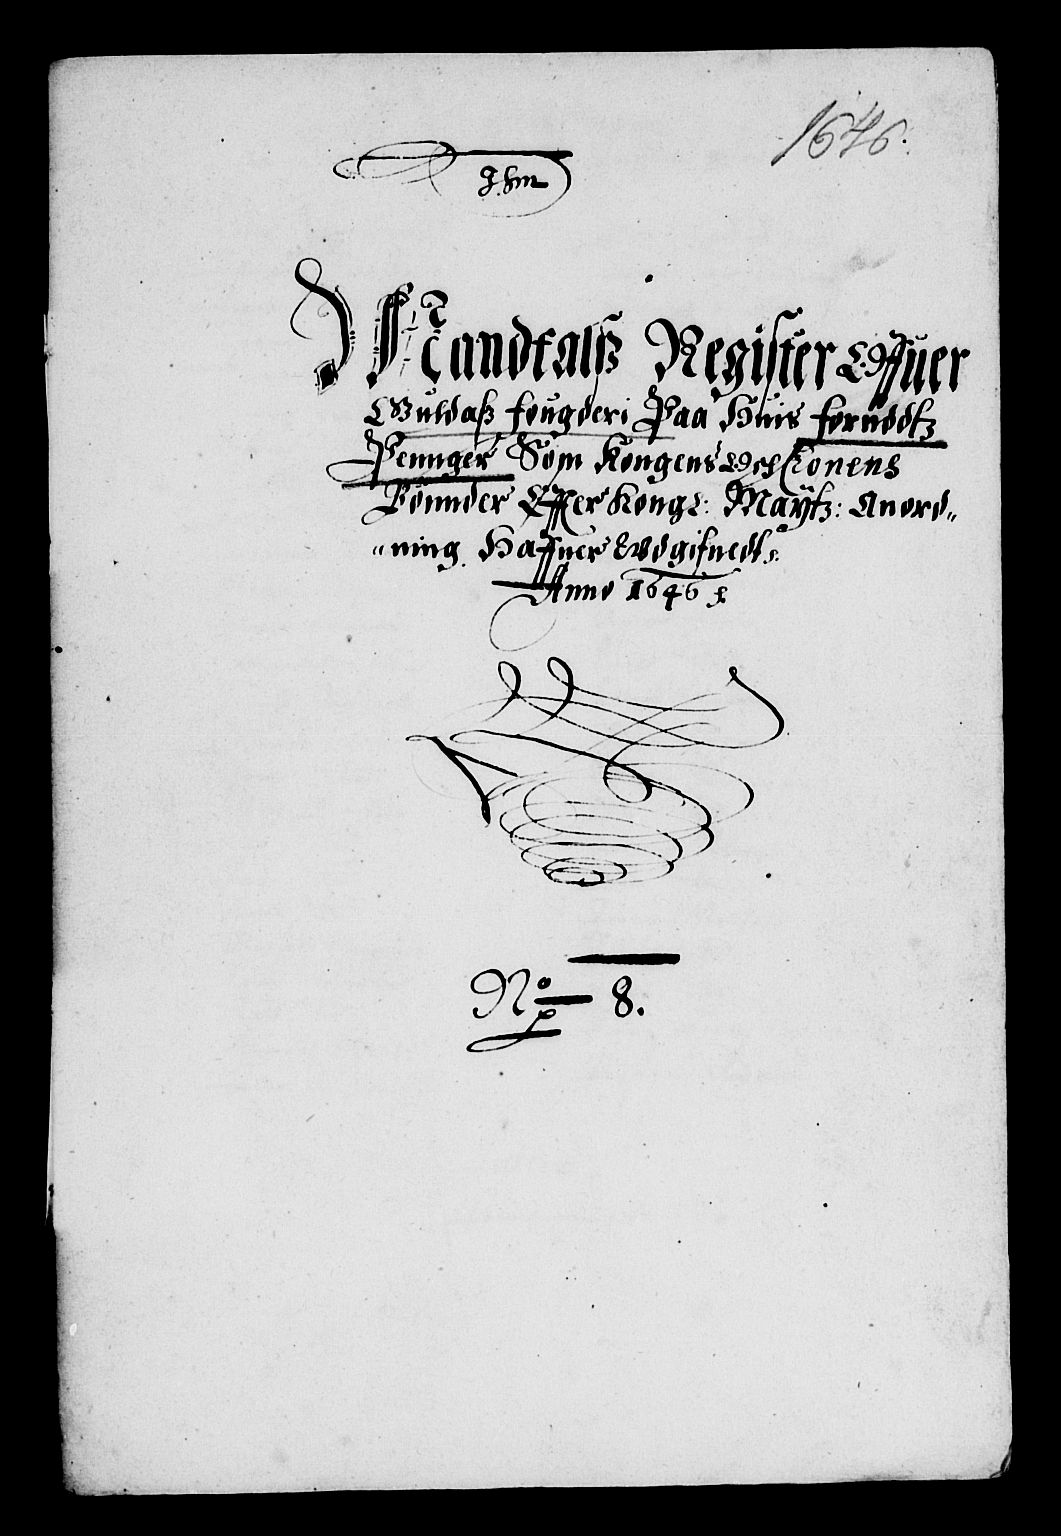 1646.
Mandtalß Register Offuer
Guldaß fougderi Paa Huis foruddtz
Pennger Som Kongens Och Cronens
Bønnder Effter Kongl: Maÿtz: Anord„
„ning. Haffuer Wdgifuedt.
Anno 1646
No 8.